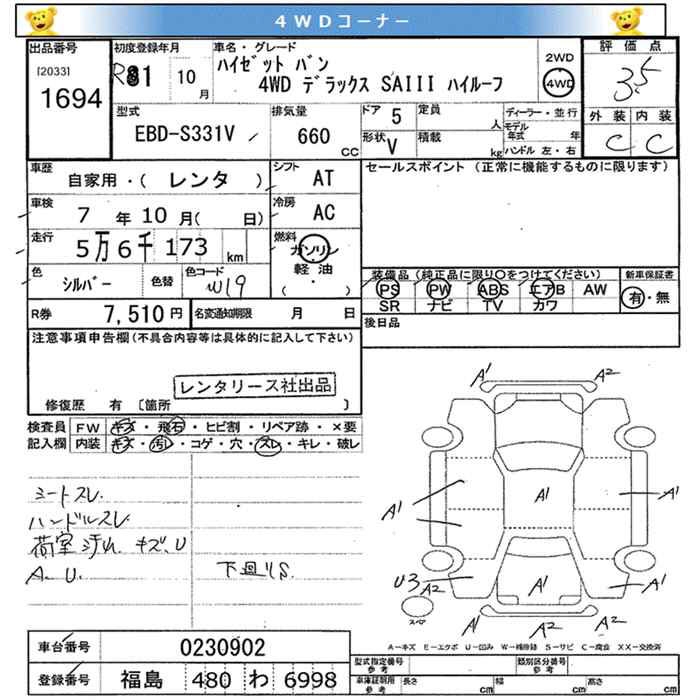 4WDコーナー
出品番号
[2033]
1694
初度登録年月
R81 10月
車名・グレード
ハイゼット バン
4WD デラックス SAIII ハイルーフ
2WD
4WD
評価点
3.5
外装 内装
C C
型式
EBD-S331V
排気量
660
CC
ドア 5
形状 V
定員
人
積載
kg
ディーラー・並行
モデル年式 年
ハンドル 左・右
車歴
自家用・( レンタ )
シフト
AT
セールスポイント (正常に機能するものに限ります)
車検
7 年 10 月( 日)
冷房
AC
走行
5万6千173 km
燃料
ガソリン
軽油
( ・ )
色
シルバー
色替
色コード
W19
装備品 (純正品に限り〇をつけてください)
PS PW ABS エアB AW
SR ナビ TV カワ
新車保証書
有・無
R券 7,510 円
名変通知期限 月 日
後日品
注意事項申告欄(不具合内容等は具体的に記入して下さい)
レンタリース社出品
修復歴 有 〔箇所 〕
検査員記入欄
FW キズ・飛石・ヒビ割・リペア跡・×要
内装 キズ・汚れ・コゲ・穴・スレ・キレ・破レ
シートスレ
ハンドルスレ
荷室 汚れ キズ、U
A、U.
下廻りS
A1 A2
A1 A1 A1
A1
U3 A2 A1 A1
A1 A2 A2
スペア
A-キズ E-エクボ U-凹み W-補修跡 S-サビ C-腐食 XX-交換済
車台番号 0230902
登録番号 福島 480 わ 6998
型式指定番号 参考
類別区分番号 参考
車庫証明用 参考
長さ cm 幅 cm 高さ cm